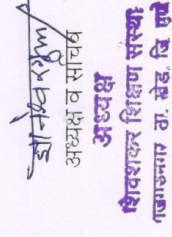 अध्यक्ष व सचिव
अध्यक्ष
शिवशंकर शिक्षण संस्था
ता. खेड, जि. पुणे